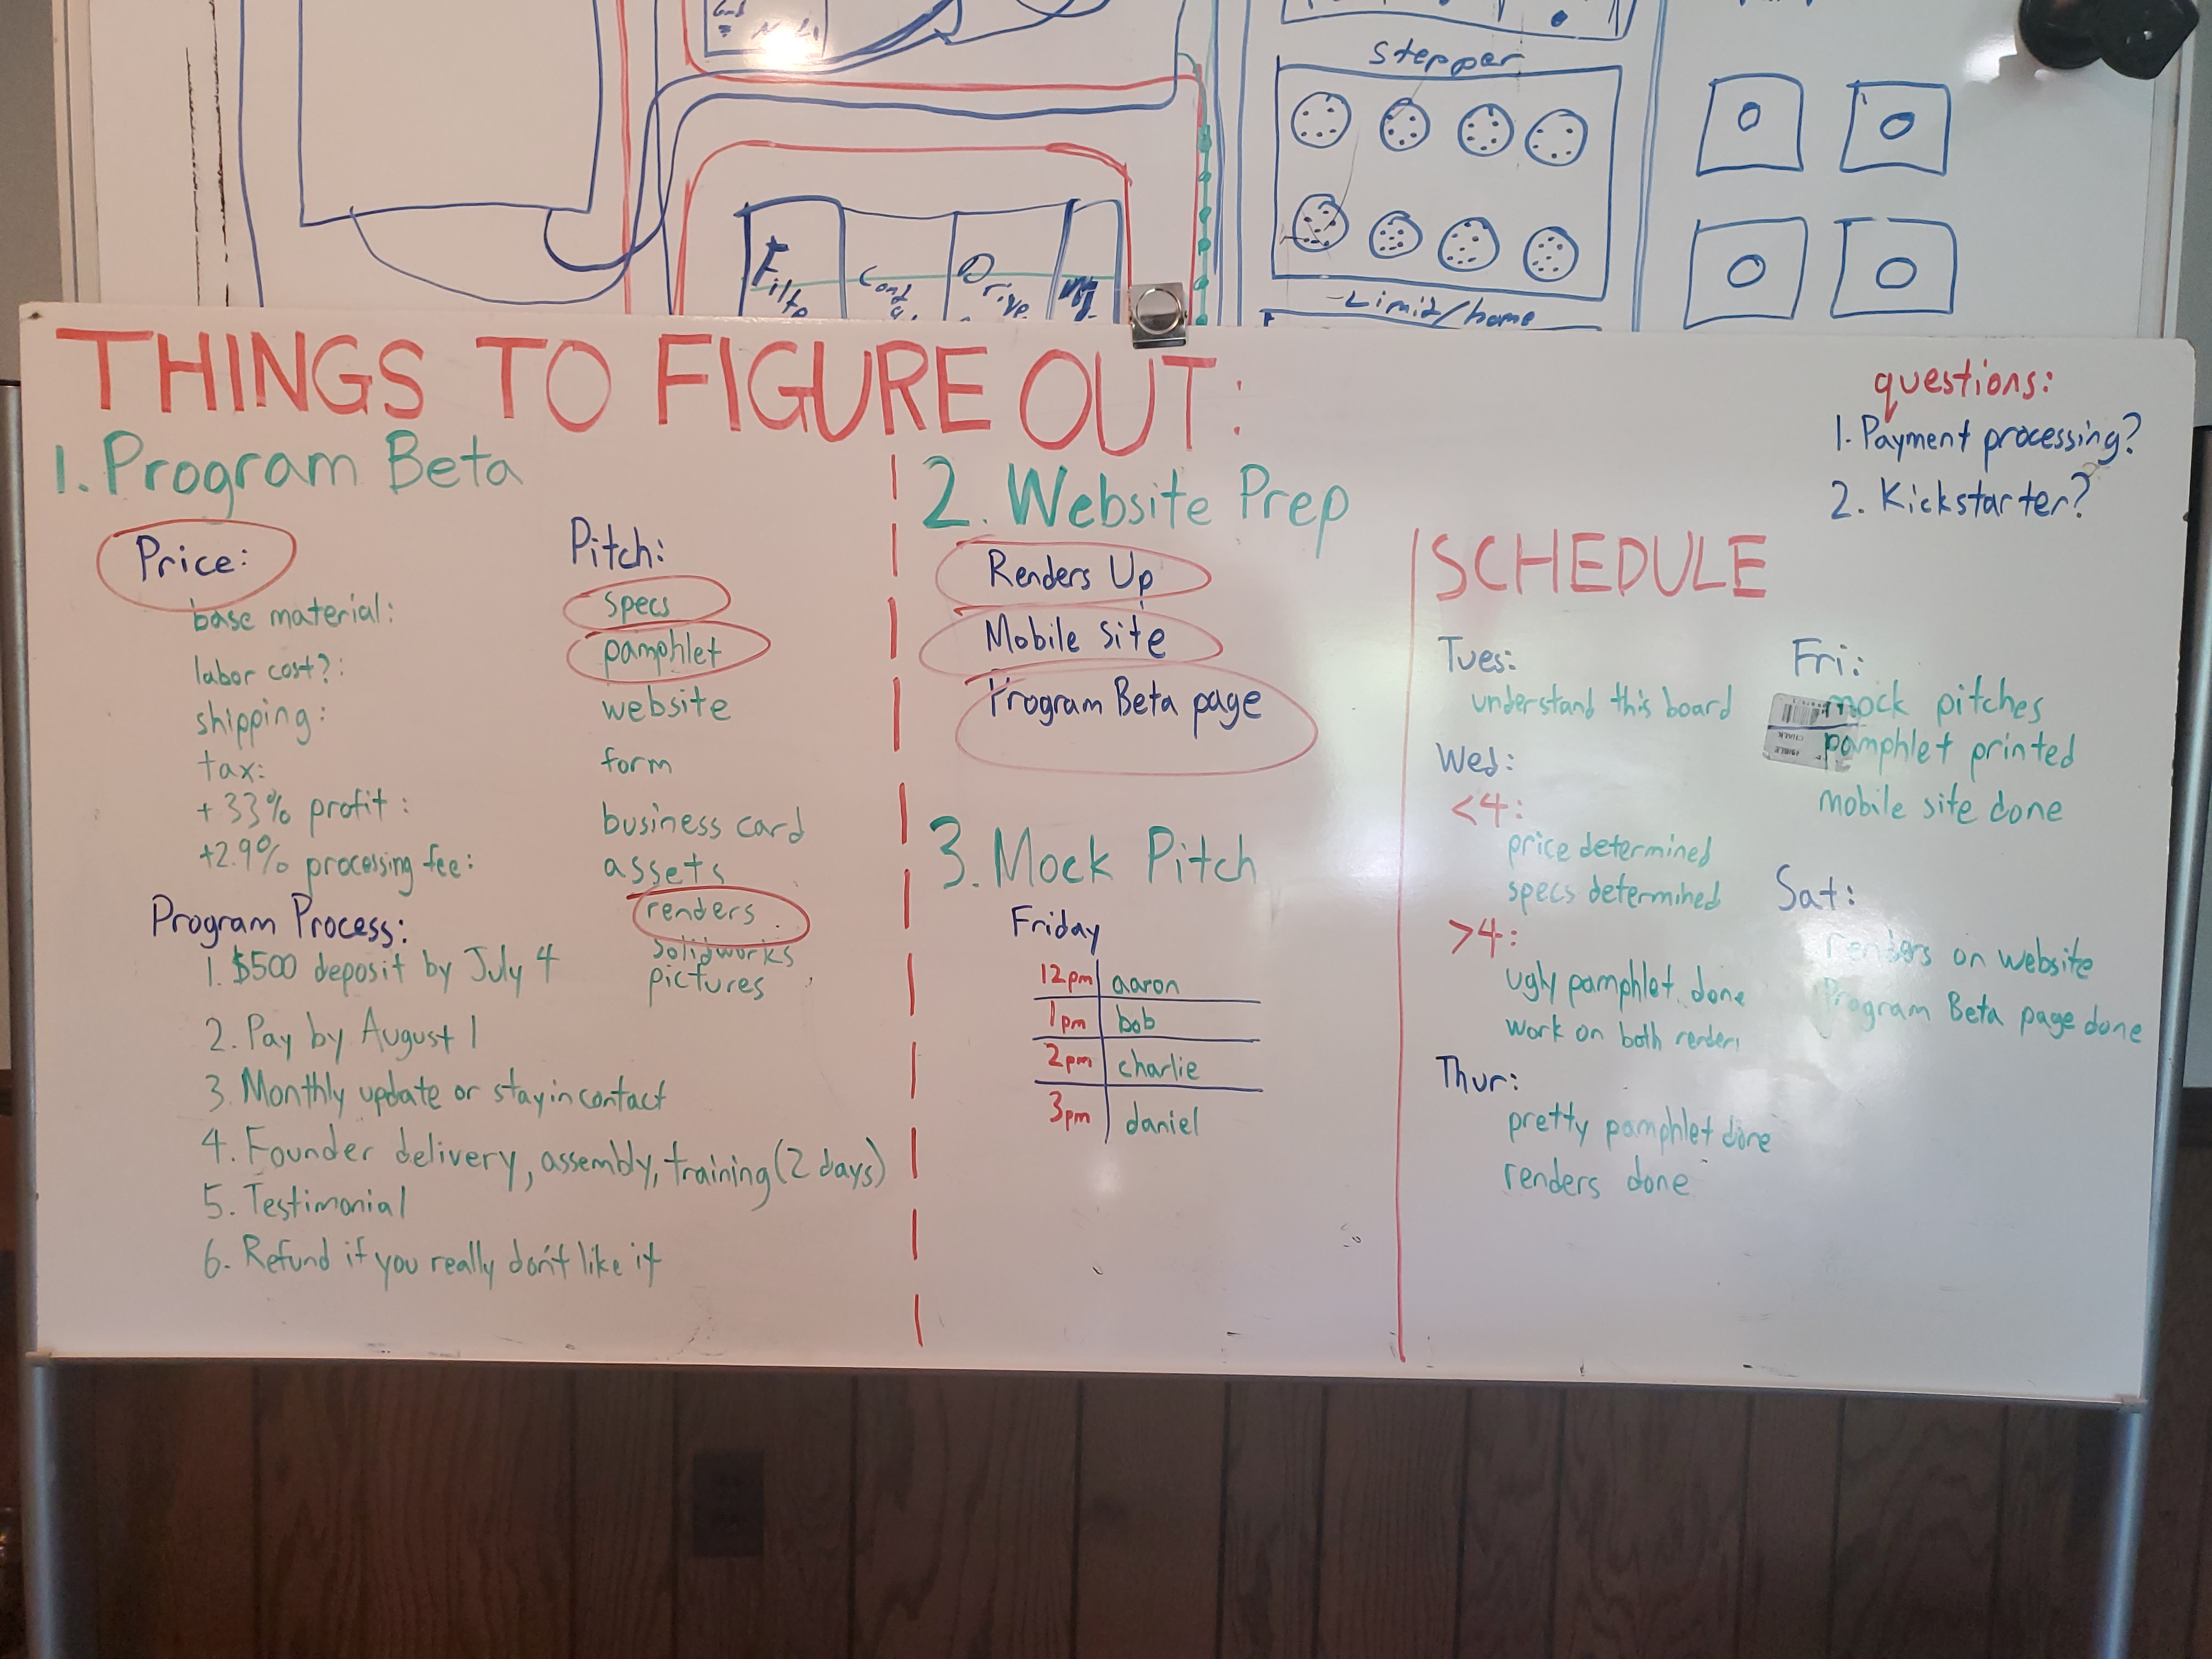 stepper
Limit/home
Drive
THINGS TO FIGURE OUT:
1. Program Beta
Price:
base material:
labor cost?:
shipping:
tax:
+33% profit:
+2.9% processing fee:
Pitch:
specs
pamphlet
website
form
business card
assets
renders
solidworks
pictures
Program Process:
1. $500 deposit by July 4
2. Pay by August 1
3. Monthly update or stay in contact
4. Founder delivery, assembly, training (2 days)
5. Testimonial
6. Refund if you really don't like it
2. Website Prep
Renders Up
Mobile site
Program Beta page
3. Mock Pitch
Friday
12pm aaron
1pm bob
2pm charlie
3pm daniel
questions:
1. Payment processing?
2. Kickstarter?
SCHEDULE
Tues:
understand this board
Wed:
<4:
price determined
specs determined
>4:
ugly pamphlet done
work on both renders
Thur:
pretty pamphlet done
renders done
Fri:
mock pitches
pamphlet printed
mobile site done
Sat:
renders on website
Program Beta page done